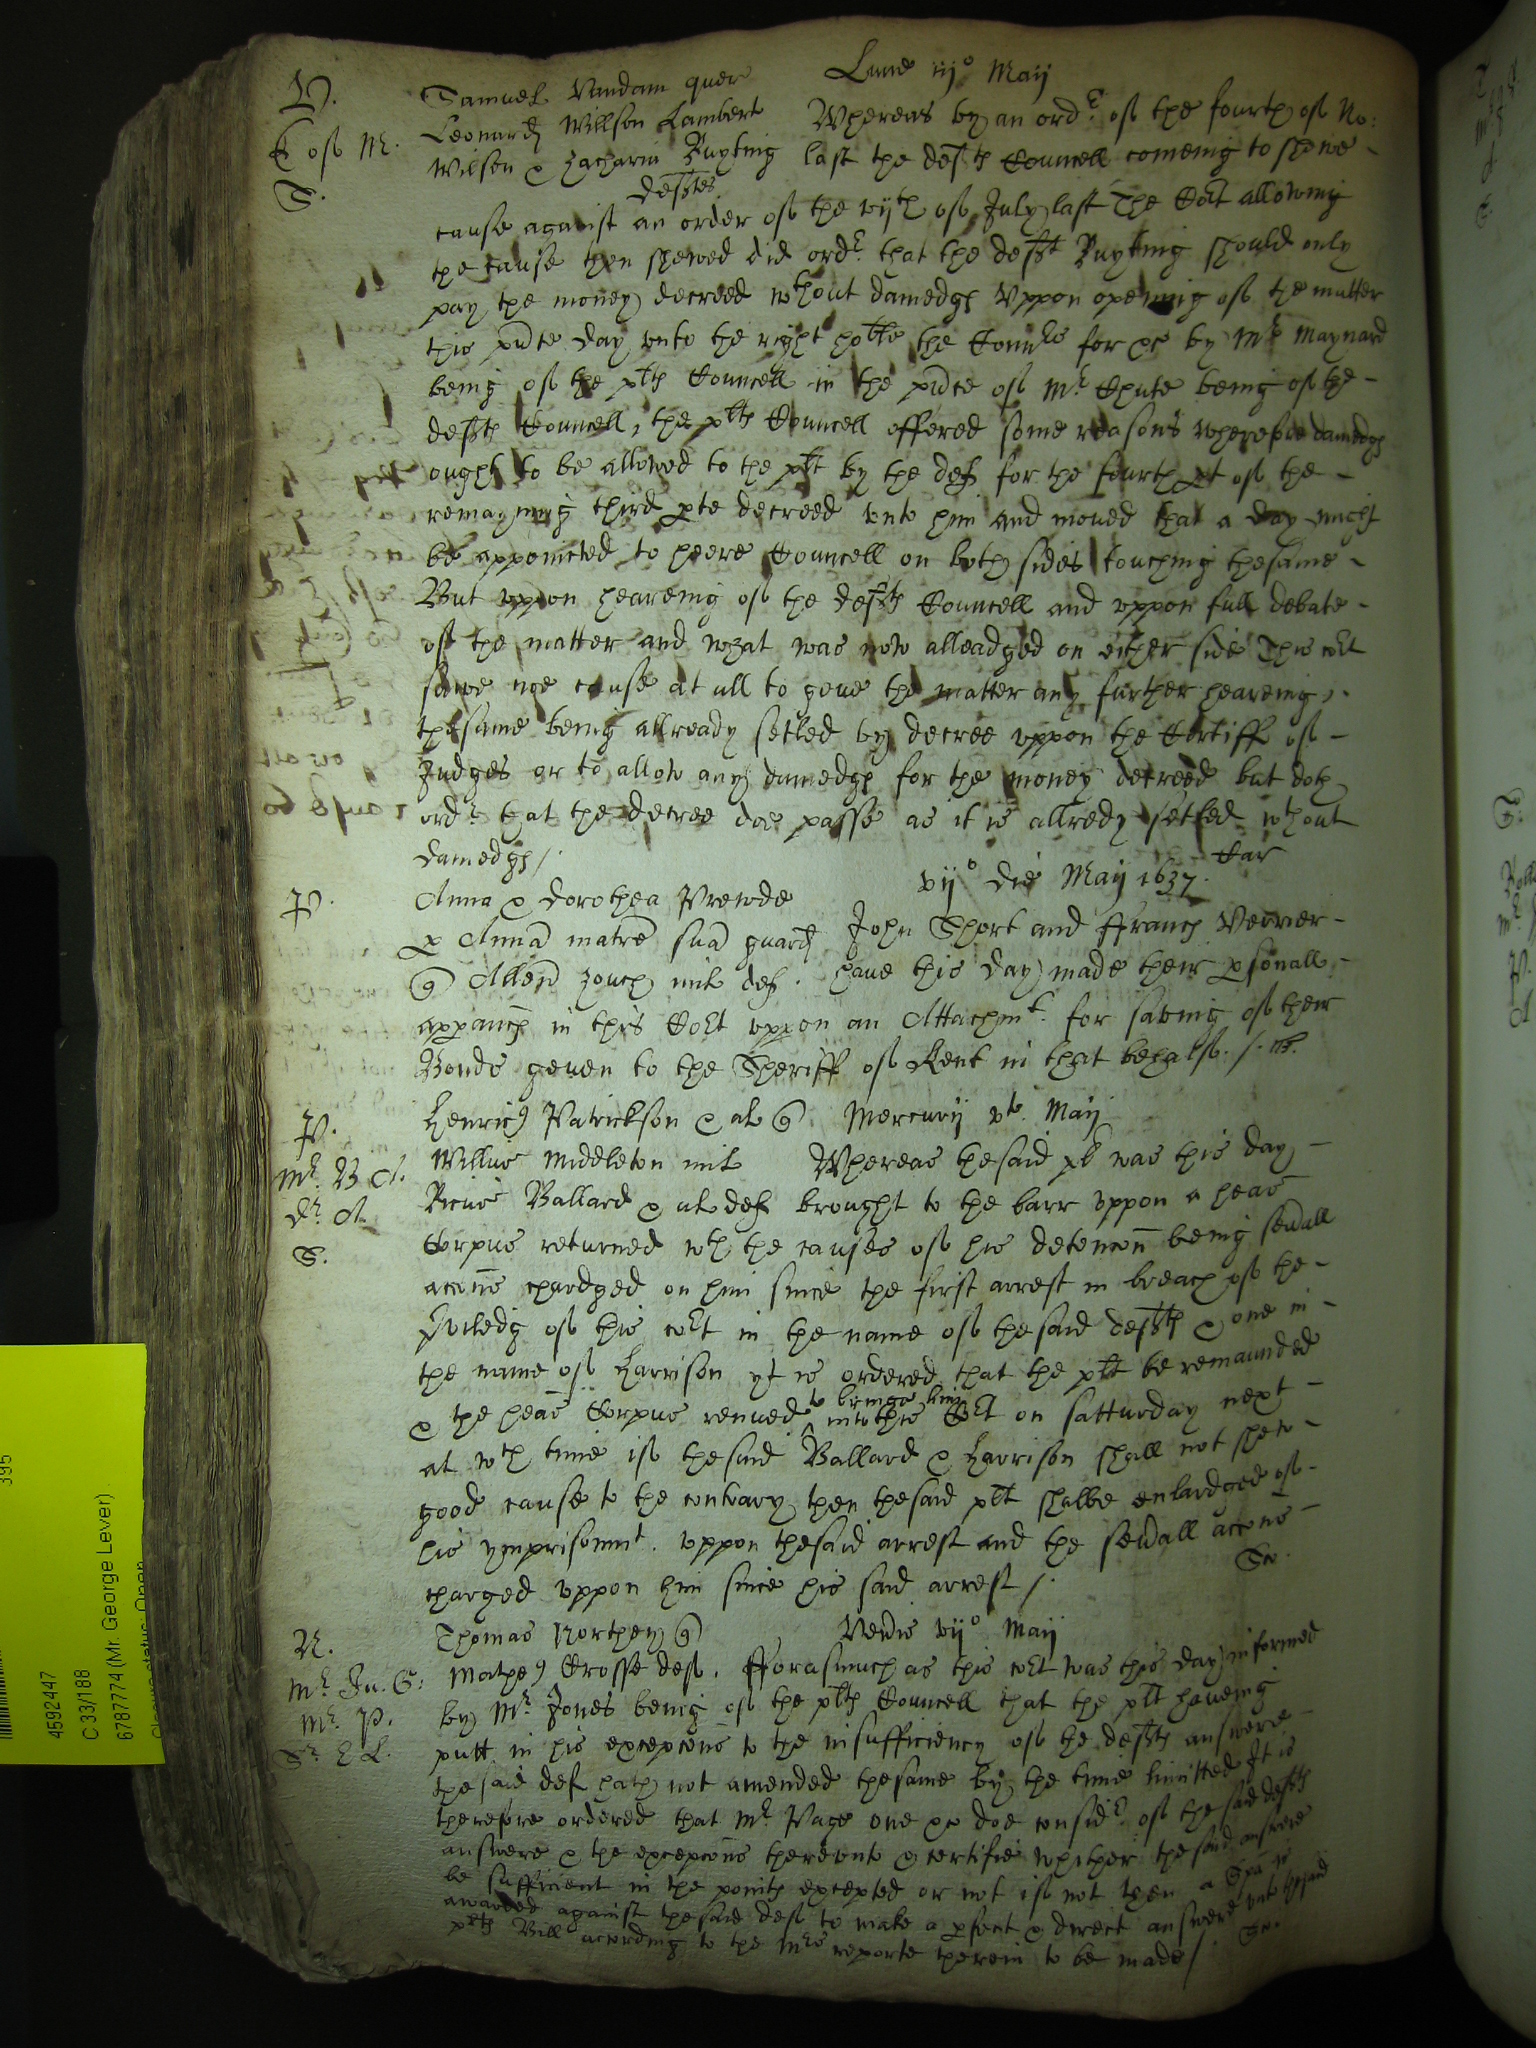 V.
E of M.
S.
Samuel Vandam quer
Lune iijo Maij
Leonard Willson Lambert
Wilson & Zacharia Buyting
defts
Whereas by an ordr of the fourth of No:
last the defts Councell comeing to shewe
cause against an order of the vijth of July last The Cort allowing
the cause then shewed did ordr that the deft Buyting should only
pay the money decreed wthout damedgs Vppon opening of the matter
this pnte day vnto the right hoble the Comrs for &c by Mr Maynard
being of the plts Councell in the pnce of Mr Chute being of the
defts Councell, the plts Councell offered some reasons wherefore damedgs
ought to be allowed to the plt by the def for the fourth pt of the
remayning third pte decreed vnto him and moved that a day might
be appointed to heere Councell on both sides touching thesame
But vppon heareing of the defts Councell and vppon full debate
of the matter and what was now alleadged on either side This cort
sawe noe cause at all to geve the matter any further heareing,
thesame being allready setled by decree vppon the Certiff of
Judges or to allow any damedgs for the money decreed but doth
ordr that the decree doe passe as it is allredy setled wthout
damedgs /.
Car
P.
vijo die Maij 1637.
Anna & Dorothea Prewde
p Anna matre sua guard
Allen Zouch mil def.
John Short and ffranc Verrier
have this day made their psonall
apparanc in this Cort vppon an Attachmt for saving of their
Bonds geven to the Sheriff of Kent in that behalf. /.
P.
Mr B A.
Dr A
S.
Henric Patrickson & al
Mercurij Maij
Willus Middleton mil
Ricus Ballard & al def
Whereas thesaid plt was this day
brought to the barr vppon a heas
Corpus returned wth the causes of his detencon being seuall
accons chardged on him since the first arrest in breach of the
Priledg of this cort in the name of thesaid defts & one in
the name of Harrison yt is ordered that the plt be remaunded
& the heas Corpus renued to bringe him into this Cort on satturday next
at wch time if thesaid Ballard & Harrison shall not shew
good cause to the contrary then thesaid plt shalbe enlardged of
his ymprisonmt. vppon thesaid arrest and the seuall accons
charged vppon him since his said arrest /.
N.
Mr Ju. G:
Mr P.
Sr E L.
Thomas Northey
Venis vijo Maij
Mathe Crosse def.
fforasmuch as this cort was this day informed
by Mr Jones being of the plts Councell that the plt haveing
putt in his excepcons to the insufficiency of the defts answere
thesaid def hath not amended thesame by the time limitted It is
therefore ordered that Mr Page one &c doe considr of the said defts
answere & the excepcons therevnto & certifie whither the said answere
be sufficient in the points excepted or not if not then a Spa is
awarded against thesaid def to make a pfect & direct answere vnto thesaid
plts Bill according to the Mrs reporte therein to be made /.
4592447
C 33/188
6787774 (Mr. George Lever)
Closure status: Open
395